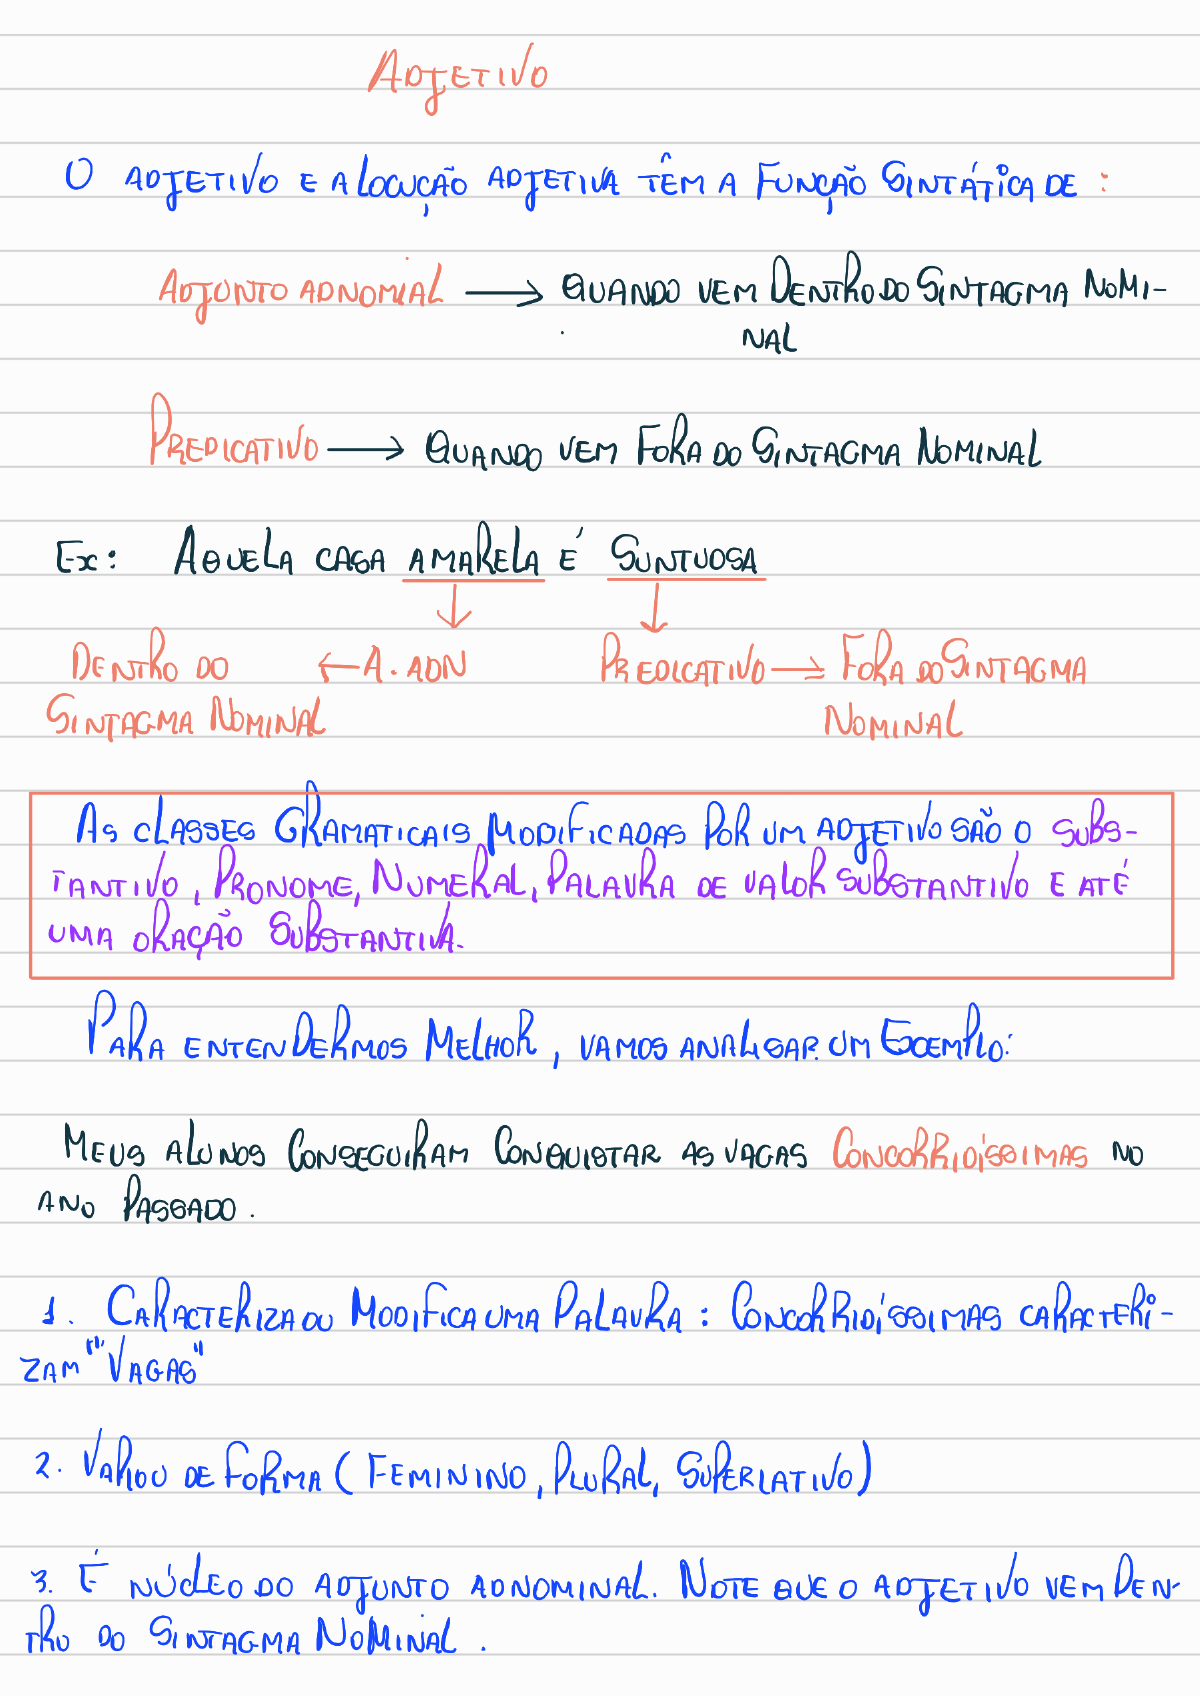 ADJETIVO
O ADJETIVO E A LOCUÇÃO ADJETIVA TÊM A FUNÇÃO SINTÁTICA DE :
ADJUNTO ADNOMIAL → QUANDO VEM DENTRO DO SINTAGMA NOMI-
NAL
PREDICATIVO → QUANDO VEM FORA DO SINTAGMA NOMINAL
Ex: AQUELA CASA AMARELA É SUNTUOSA
DENTRO DO ← A. ADN PREDICATIVO → FORA DO SINTAGMA
SINTAGMA NOMINAL NOMINAL
AS CLASSES GRAMATICAIS MODIFICADAS POR UM ADJETIVO SÃO O SUBS-
TANTIVO, PRONOME, NUMERAL, PALAVRA DE VALOR SUBSTANTIVO E ATÉ
UMA ORAÇÃO SUBSTANTIVA.
PARA ENTENDERMOS MELHOR, VAMOS ANALISAR UM EXEMPLO:
MEUS ALUNOS CONSEGUIRAM CONQUISTAR AS VAGAS CONCORRIDÍSSIMAS NO
ANO PASSADO.
1. CARACTERIZA OU MODIFICA UMA PALAVRA : CONCORRIDÍSSIMAS CARACTERI-
ZAM "VAGAS"
2. VARIOU DE FORMA (FEMININO, PLURAL, SUPERLATIVO)
3. É NÚCLEO DO ADJUNTO ADNOMINAL. NOTE QUE O ADJETIVO VEM DEN-
TRO DO SINTAGMA NOMINAL.